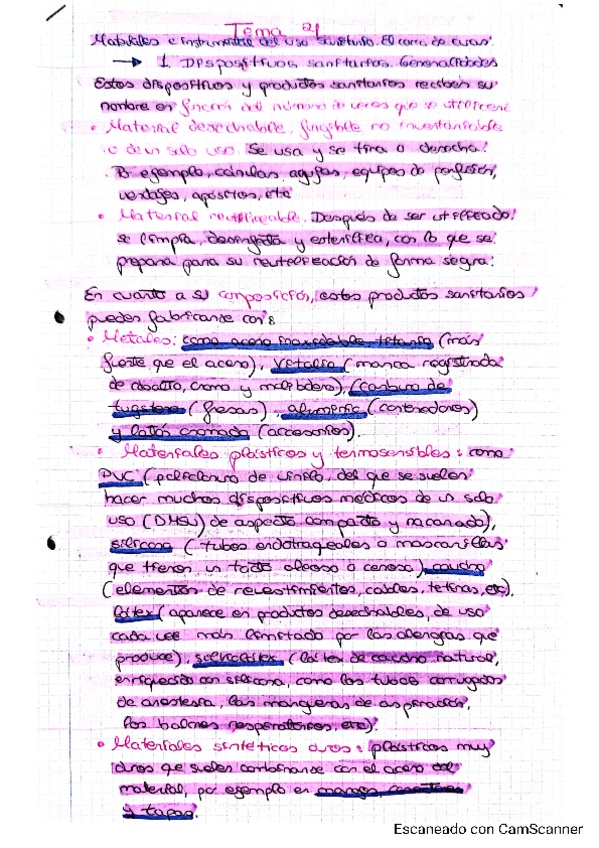 Tema 21
Materiales e instrumental de uso sanitario. El carro de curas.
→ 1. Dispositivos sanitarios. Generalidades
Estos dispositivos y productos sanitarios reciben su
nombre en función del número de veces que se utilicen:
• Material desechable, fungible no inventariable
o de un solo uso. Se usa y se tira o desecha.
Por ejemplo, cánulas, agujas, equipos de perfusión,
vendajes, apósitos, etc
• Material reutilizable. Después de ser utilizado
se limpia, desinfecta y esteriliza, con lo que se
prepara para su reutilización de forma segura.
En cuanto a su composición, estos productos sanitarios
pueden fabricarse con:
• Metales: como acero inoxidable titanio (más
fuerte que el acero), Vitalio (marca registrada
de cobalto, cromo y molibdeno), carburo de
tugsteno (fresas), aluminio (contenedores)
y latón cromado (accesorios).
• Materiales plásticos y termosensibles: como
PVC (policloruro de vinilo, del que se suelen
hacer muchos dispositivos médicos de un solo
uso (DMSU) de aspecto compacto y nacarado),
silicona (tubos endotraqueales o mascarillas
que tienen un tacto oleoso o ceroso), caucho
(elementos de revestimientos, cables, tetinas, etc),
látex (aparece en productos desechables, de uso
cada vez más limitado por las alergias que
produce), silicolátex (látex de caucho natural,
enriquecido con silicona, como los tubos corrugados
de anestesia, las mangueras de aspiración,
los balones respiratorios, etc).
• Materiales sintéticos duros: plásticos muy
duros que suelen combinarse con el acero del
material, por ejemplo en mangos
y tapas.
Escaneado con CamScanner